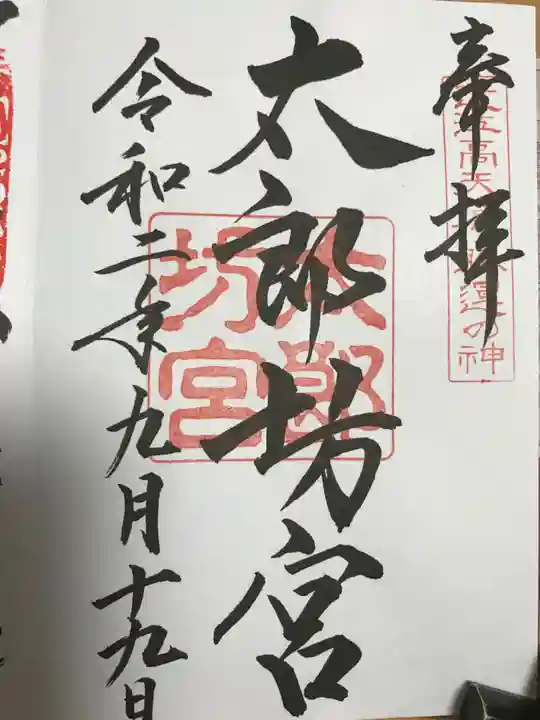 奉拝
近江高天原勝運の神
太郎坊宮
太郎坊宮
令和二年九月十九日